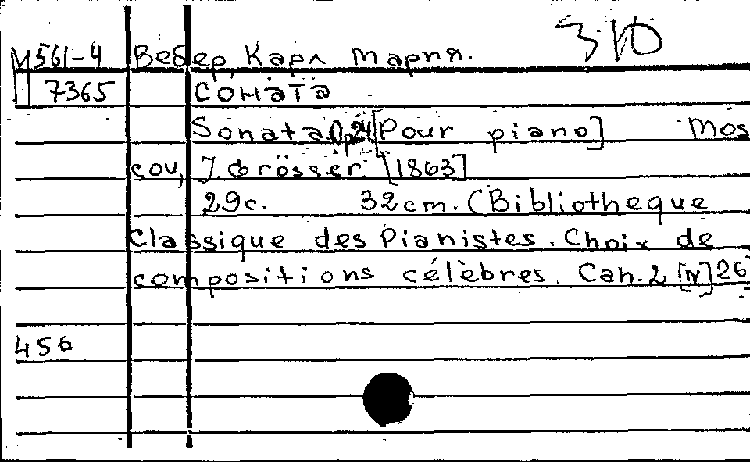 310
М561-4 Вебер, Карл Мария.
7365 Соната
Sonata Op.24 [Pour piano] Mos
cou, J. Grösser [1863]
29с. 32cm. (Bibliotheque
Classique des Pianistes. Choix de
compositions célèbres. Cah. 2 [N] 26
456